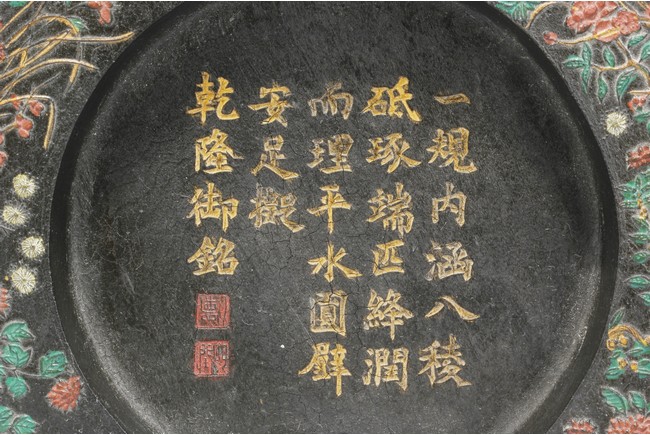 一規内涵八稜
砥琢端匹絳潤
而理平水圓璧
安足
乾隆御銘